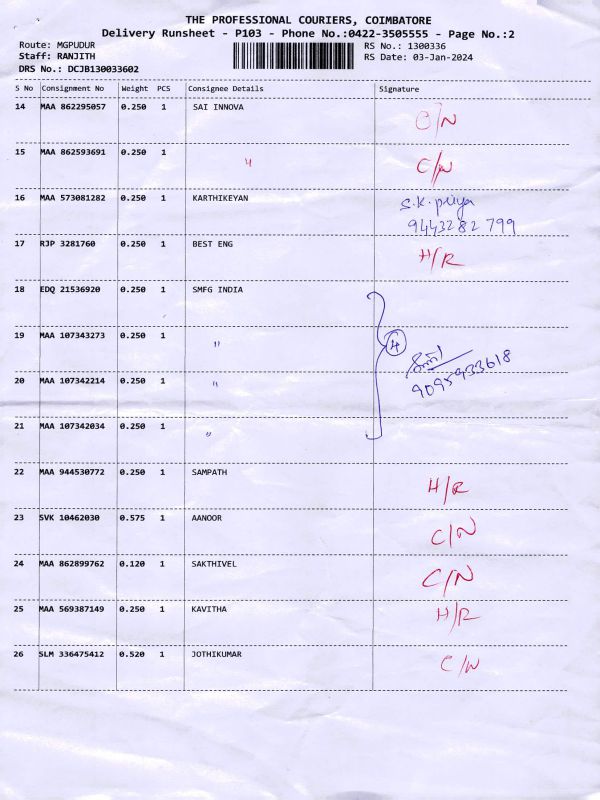 THE PROFESSIONAL COURIERS, COIMBATORE
Delivery Runsheet - P103 - Phone No.:0422-3505555 - Page No.:2
Route: MGPUDUR RS No.: 1300336
Staff: RANJITH RS Date: 03-Jan-2024
DRS No.: DCJB130033602
S No Consignment No Weight PCS Consignee Details Signature
14 MAA 862295057 0.250 1 SAI INNOVA C/N
15 MAA 862593691 0.250 1 " C/N
16 MAA 573081282 0.250 1 KARTHIKEYAN S.K. priya
9443282 799
17 RJP 3281760 0.250 1 BEST ENG H/R
18 EDQ 21536920 0.250 1 SMFG INDIA
19 MAA 107343273 0.250 1 " 4
20 MAA 107342214 0.250 1 " 9095933618
21 MAA 107342034 0.250 1 "
22 MAA 944530772 0.250 1 SAMPATH H/R
23 SVK 10462030 0.575 1 AANOOR C/N
24 MAA 862899762 0.120 1 SAKTHIVEL C/N
25 MAA 569387149 0.250 1 KAVITHA H/R
26 SLM 336475412 0.520 1 JOTHIKUMAR C/N